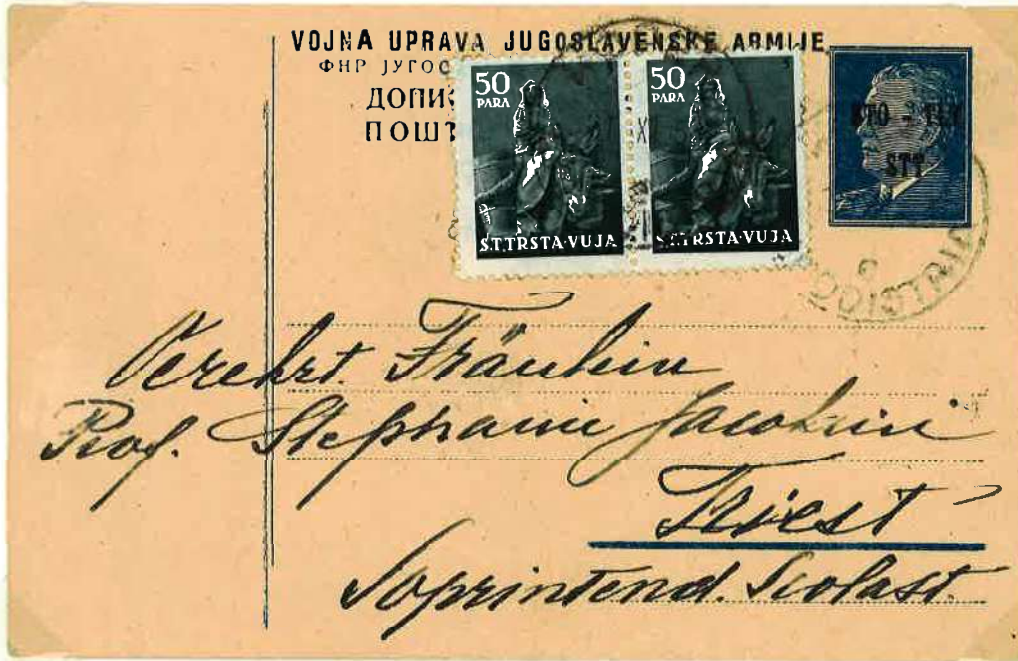 VOJNA UPRAVA JUGOSLAVENSKE ARMIJE
ФНР ЈУГОС
ДОПИС
ПОШТ
50
PARA
S.T.TRSTA-VUJA
50
PARA
S.T.TRSTA-VUJA
STO - TLT
STT
Verehrt. Fräulein
Prof. Stephanie
Triest
Soprintend. Scolast.